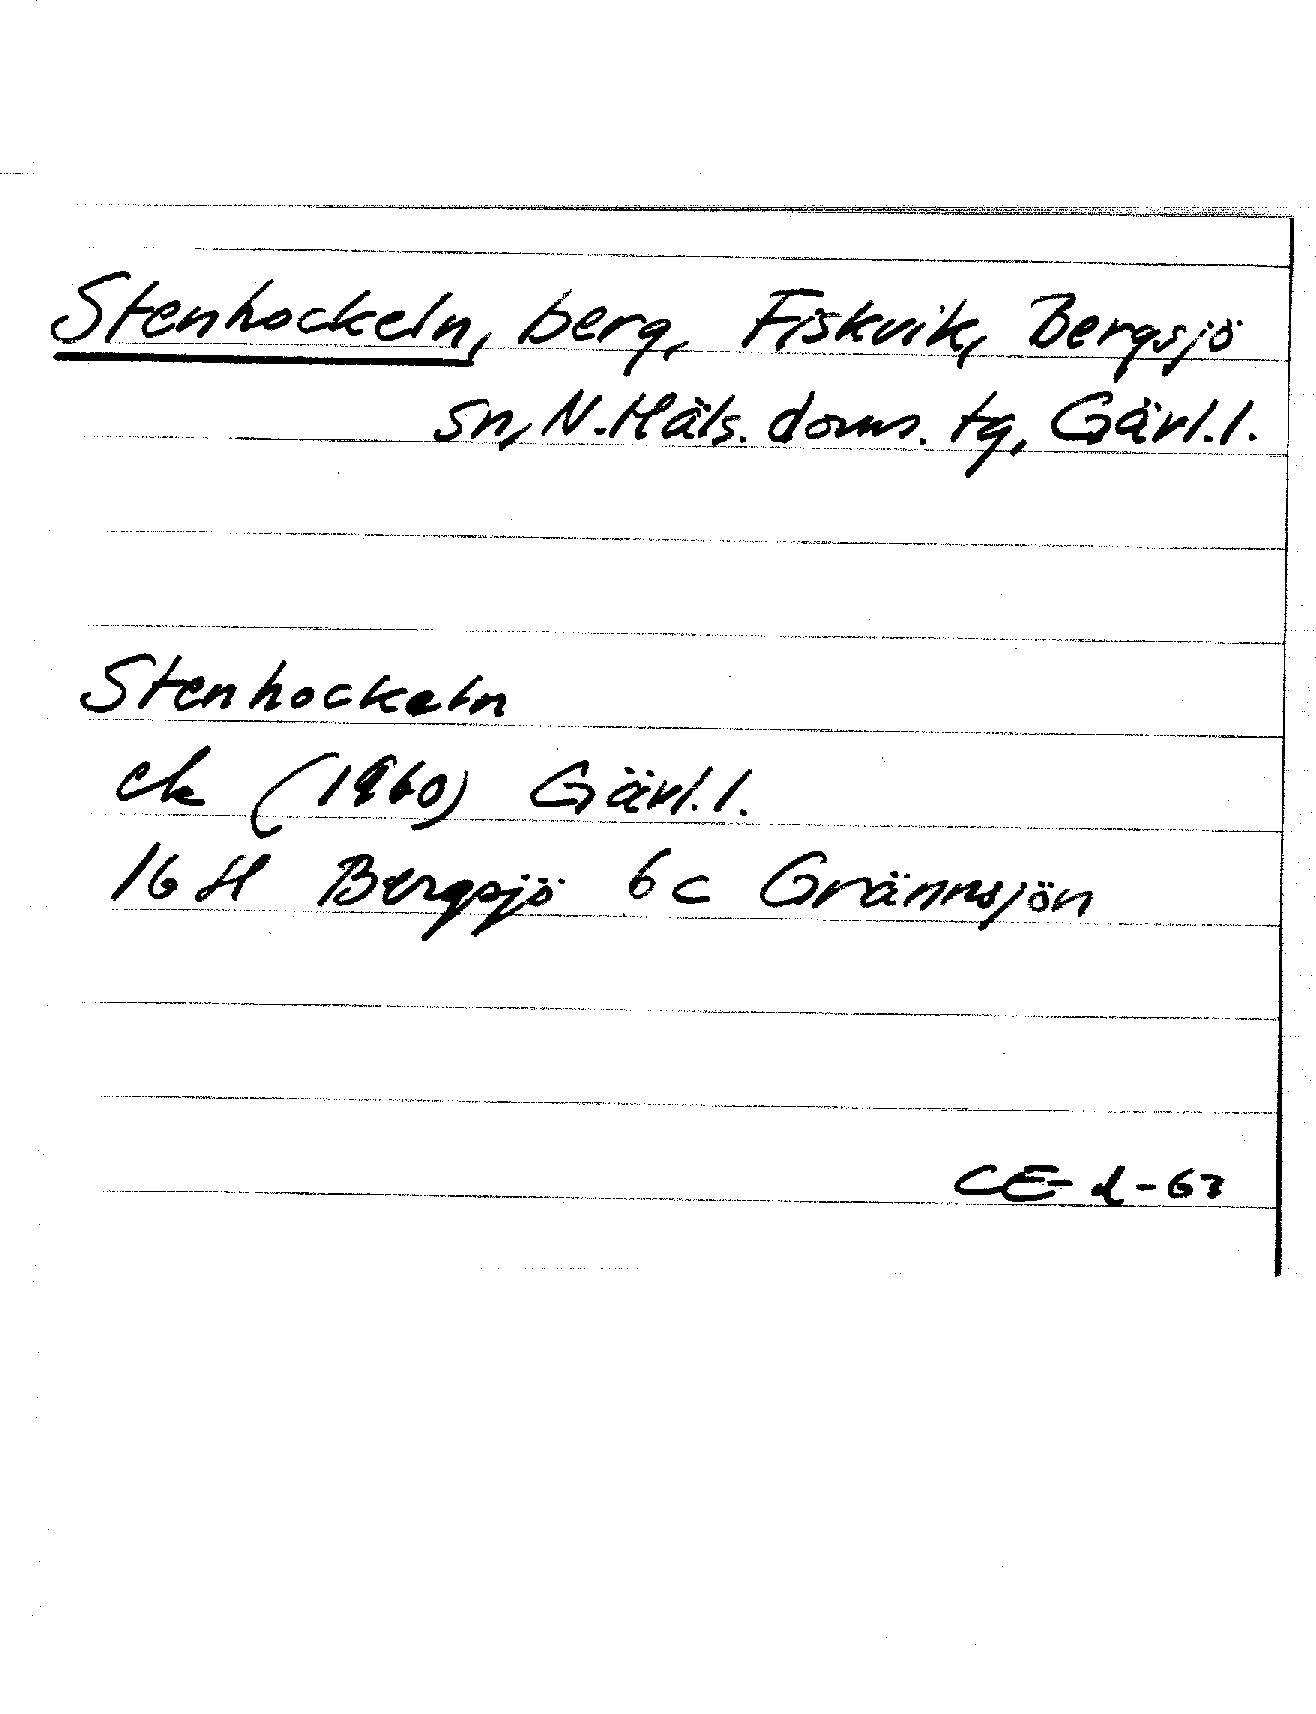 Stenhockeln, berg, Fiskvik, Bergsjö
sn, N. Häls. doms. tg, Gävl. l.
Stenhockeln
ek (1960) Gävl. l.
16 H Bergsjö 6 c Grännsjön
CE